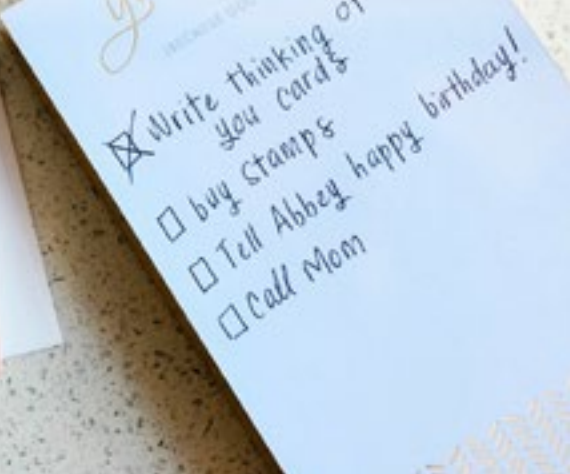 Write thinking of
you cards
buy stamps
Tell Abbey happy birthday!
Call Mom